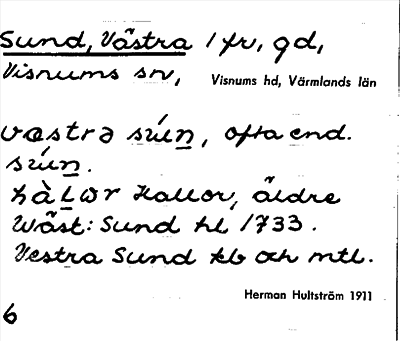 Sund, Västra 1 fr, gd,
Visnums sn, Visnums hd, Värmlands län
västra súṉ, ofta end.
súṉ.
hàḻωr Hallor, äldre
Wäst: Sund hl 1733.
Vestra Sund kb och mtl.
Herman Hultström 1911
6